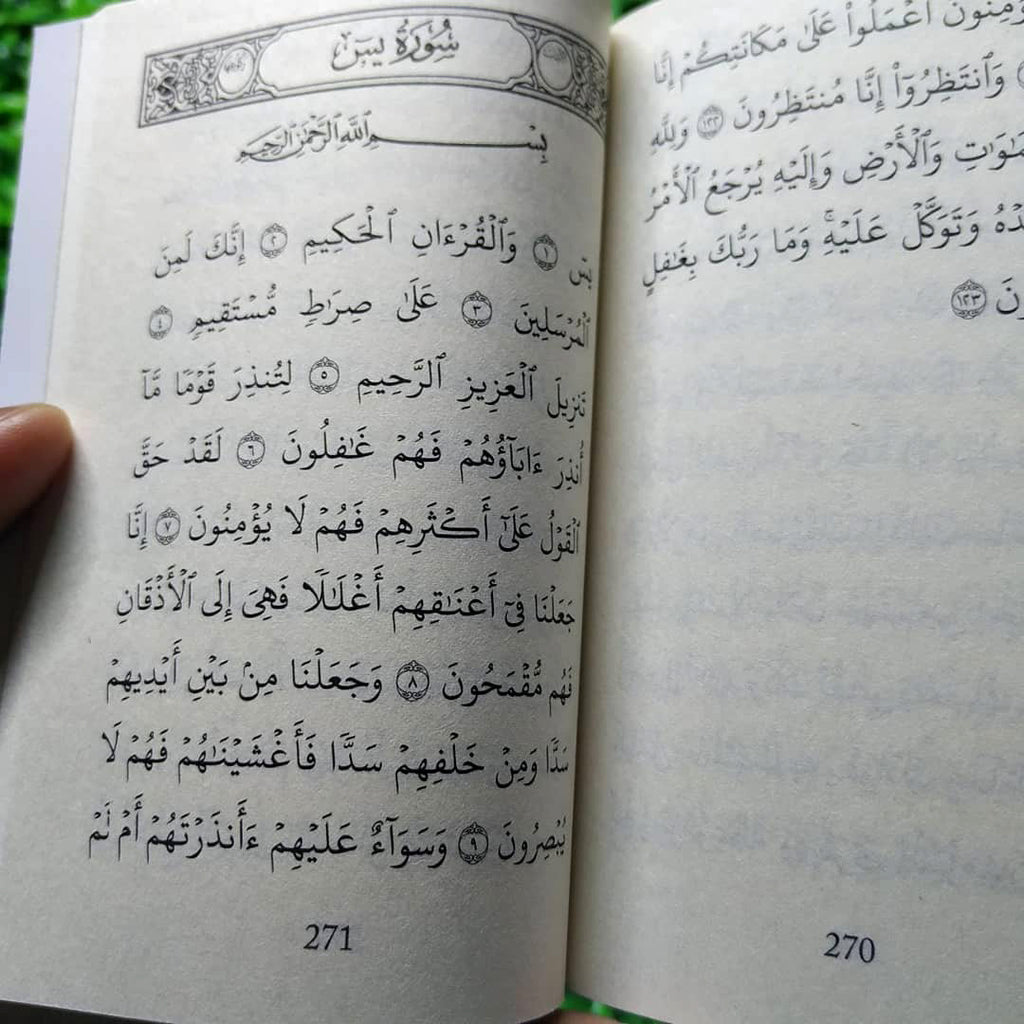 ٱعْمَلُوا۟ عَلَىٰ مَكَانَتِكُمْ إِنَّا
وَٱنتَظِرُوٓا۟ إِنَّا مُنتَظِرُونَ ١٢٢ وَلِلَّهِ
وَٱلْأَرْضِ وَإِلَيْهِ يُرْجَعُ ٱلْأَمْرُ
وَتَوَكَّلْ عَلَيْهِ ۚ وَمَا رَبُّكَ بِغَـٰفِلٍ
١٢٣
270
سُورَةُ يسٓ
بِسْمِ ٱللَّهِ ٱلرَّحْمَـٰنِ ٱلرَّحِيمِ
يسٓ ١ وَٱلْقُرْءَانِ ٱلْحَكِيمِ ٢ إِنَّكَ لَمِنَ
ٱلْمُرْسَلِينَ ٣ عَلَىٰ صِرَٰطٍ مُّسْتَقِيمٍ ٤
تَنزِيلَ ٱلْعَزِيزِ ٱلرَّحِيمِ ٥ لِتُنذِرَ قَوْمًا مَّآ
أُنذِرَ ءَابَآؤُهُمْ فَهُمْ غَـٰفِلُونَ ٦ لَقَدْ حَقَّ
ٱلْقَوْلُ عَلَىٰٓ أَكْثَرِهِمْ فَهُمْ لَا يُؤْمِنُونَ ٧ إِنَّا
جَعَلْنَا فِىٓ أَعْنَـٰقِهِمْ أَغْلَـٰلًا فَهِىَ إِلَى ٱلْأَذْقَانِ
فَهُم مُّقْمَحُونَ ٨ وَجَعَلْنَا مِنۢ بَيْنِ أَيْدِيهِمْ
سَدًّا وَمِنْ خَلْفِهِمْ سَدًّا فَأَغْشَيْنَـٰهُمْ فَهُمْ لَا
يُبْصِرُونَ ٩ وَسَوَآءٌ عَلَيْهِمْ ءَأَنذَرْتَهُمْ أَمْ لَمْ
271